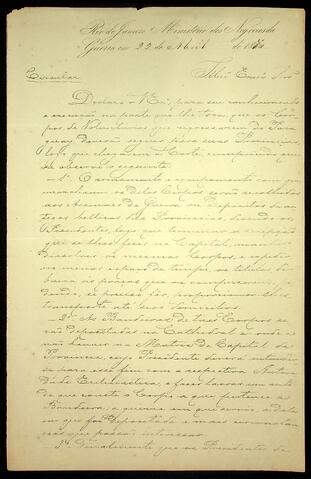 Rio de Janeiro Ministerio dos Negocios da
Guerra em 22 de Abril de 1870
Circular
Illmo Exmo Snr
Declaro a V. Exa, para seu conhecimento
e execução na parte que lhe toca que os Cor
pos de Voluntarios que regressarem do Para
guay devem seguir para suas Provincias,
logo que cheguem à Corte, cumprindo que
se observe o seguinte
1º Armamento e equipamento com que
marcham os ditos Corpos serão recolhidos
aos Arsenaes de Guerra ou Depositos de ar
tigos bellicos das Provincias, devendo os
Presidentes, logo que termine a recepção
que se lhes fizer na Capital, mandar
dissolver os mesmos Corpos, e expedir
no menor espaço de tempo, os titulos de
baixa ás praças que os comprehendem,
dando, se preciso for,
transporte até seus domicilios.
2º As Bandeiras de taes Corpos se
rão depositadas na Cathedral e onde a
não houver na Matriz da Capital da
Provincia, cujo Presidente deverá entender
se para esse fim com a respectiva Autori
dade Ecclesiastica, e fazer lavrar um auto
de que conste o Corpo a que pertence a
Bandeira, a guerra em que serviu, a data
em que foi depositada e mais circunstan
cias que possam interessar.
3º Finalmente que os Presidentes de